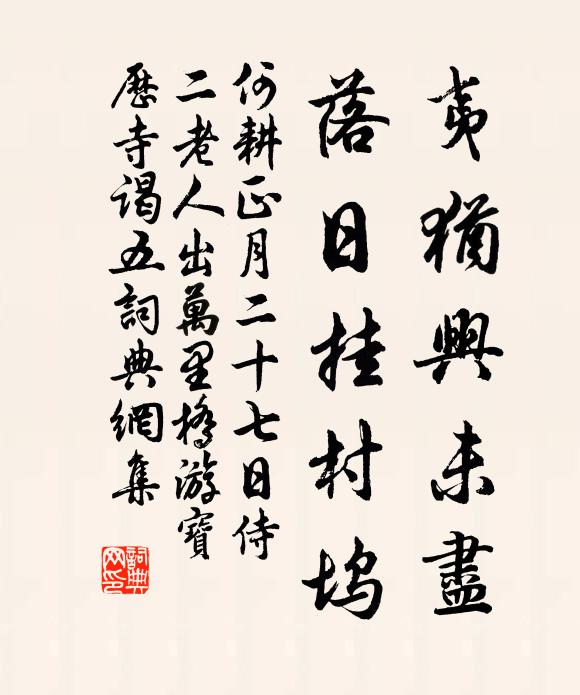 夷猶興未盡
落日挂村坞
何耕正月二十七日侍
二老人出萬里橋游寶
歷寺谒五詞典網集
詞典网印